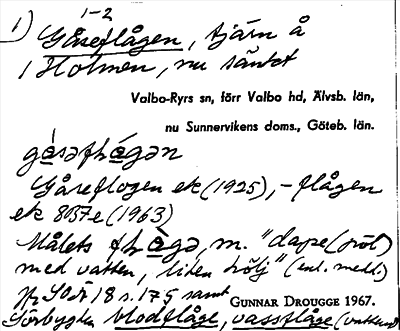 1) 1-2
Gåseflågen, tjärn å
1 Holmen, nu sänkt
Valbo-Ryrs sn, förr Valbo hd, Älvsb. län,
nu Sunnervikens doms., Göteb. län.
Gåseflogen ek (1925), -flågen
ek 8B7e (1963)
Målets m. "dape (göl)
med vatten, liten hölj" (enl. medd.)
18 s. 175 samt
GUNNAR DROUGGE 1967.
Sörbygden blodflåge, vassflåge (vatten)